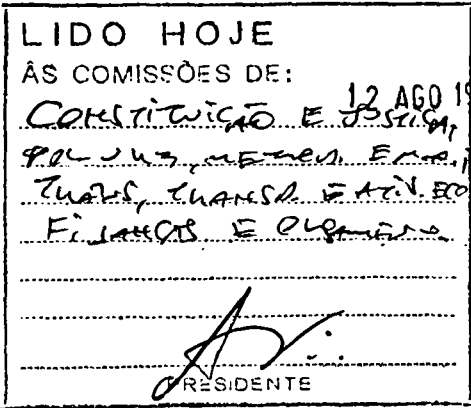 LIDO HOJE
ÀS COMISSÕES DE:
12 AGO 19
CONSTITUIÇÃO E JUSTIÇA,
POL. URB, METROP. E M. A.,
TRÂNS, TRANSP. E ATIV. ECO
FINANÇAS E ORÇAMENTO
PRESIDENTE